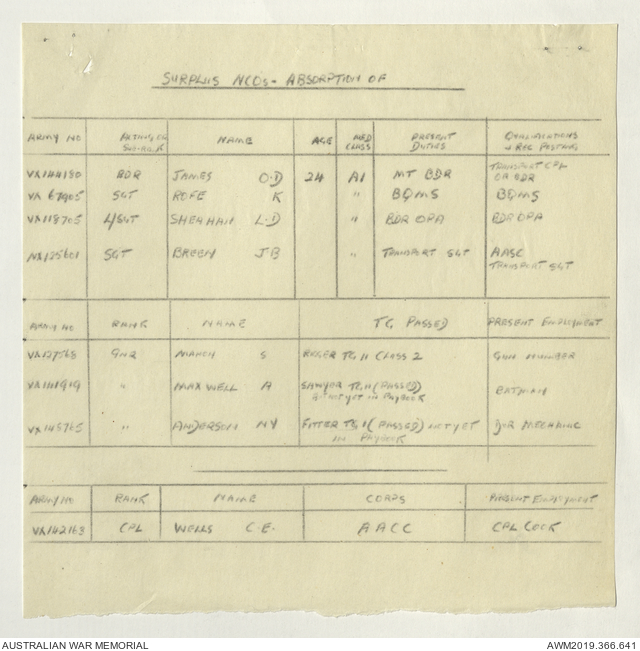 SURPLUS NCOs - ABSORPTION OF
ARMY NO ACTING OR NAME AGE MED CLASS PRESENT DUTIES QUALIFICATIONS & REC POSTING
VX144180 BDR JAMES O.D 24 A1 MT BDR TRANSPORT CPL OR BDR
VX67905 SGT ROFE K " BQMS BQMS
VX118705 L/SGT SHEAHAN L.D " BDR OPA BDR OPA
NX125601 SGT BREEN J B " TRANSPORT SGT AASC TRANSPORT SGT
ARMY NO RANK NAME TG PASSED PRESENT EMPLOYMENT
GNR MARCH S TG II CLASS 2 GUN NUMBER
VX141919 " MAXWELL A SAWYER TG II (PASSED) BATMAN
not yet in PAYBOOK
VX145765 " ANDERSON NV FITTER TG II (PASSED) NOT YET MECHANIC
IN PAYBOOK
ARMY NO RANK NAME CORPS PRESENT EMPLOYMENT
VX142163 CPL WELLS C.E. AACC CPL COOK
AUSTRALIAN WAR MEMORIAL
AWM2019.366.641